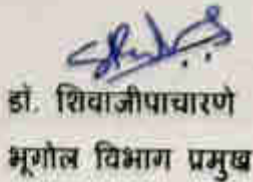 डॉ. शिवाजीपाचारणे
भूगोल विभाग प्रमुख